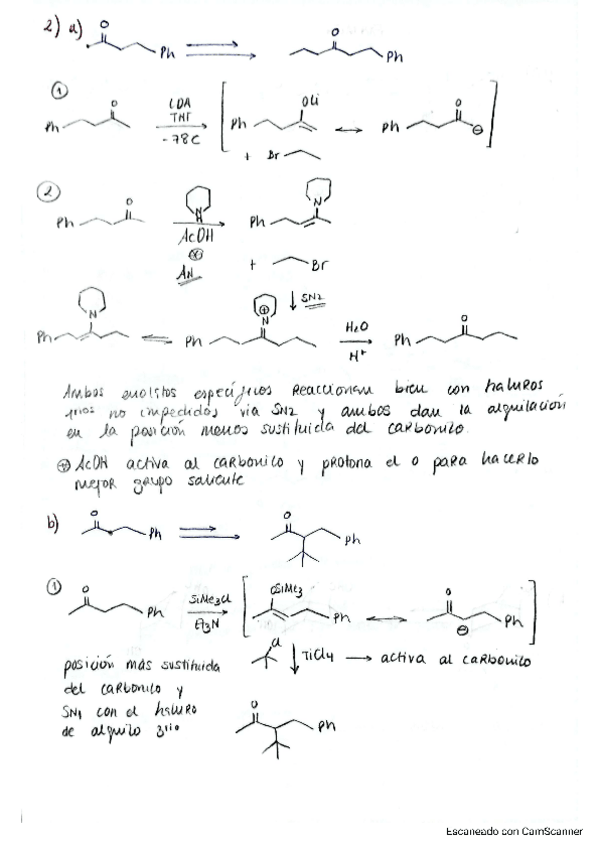 2) a) O Ph O Ph
①
O Ph LDA THF -78C OLi Ph O Ph ⊖
+ Br
②
O Ph N H AcOH ⊕ AN N Ph
+ Br
↓ SN2
N Ph ⊕ N Ph H2O H+ O Ph
Ambos enolatos específicos reaccionan bien con haluros
1rios no impedidos via SN2 y ambos dan la alquilación
en la posición menos sustituida del carbonilo.
⊕ AcOH activa al carbonilo y protona el O para hacerlo
mejor grupo saliente
b) O Ph O Ph
①
O Ph SiMe3Cl Et3N OSiMe3 Ph O Ph ⊖
Cl ↓ TiCl4 → activa al carbonilo
posición más sustituida
del carbonilo y
SN1 con el haluro
de alquilo 3rio
O Ph
Escaneado con CamScanner